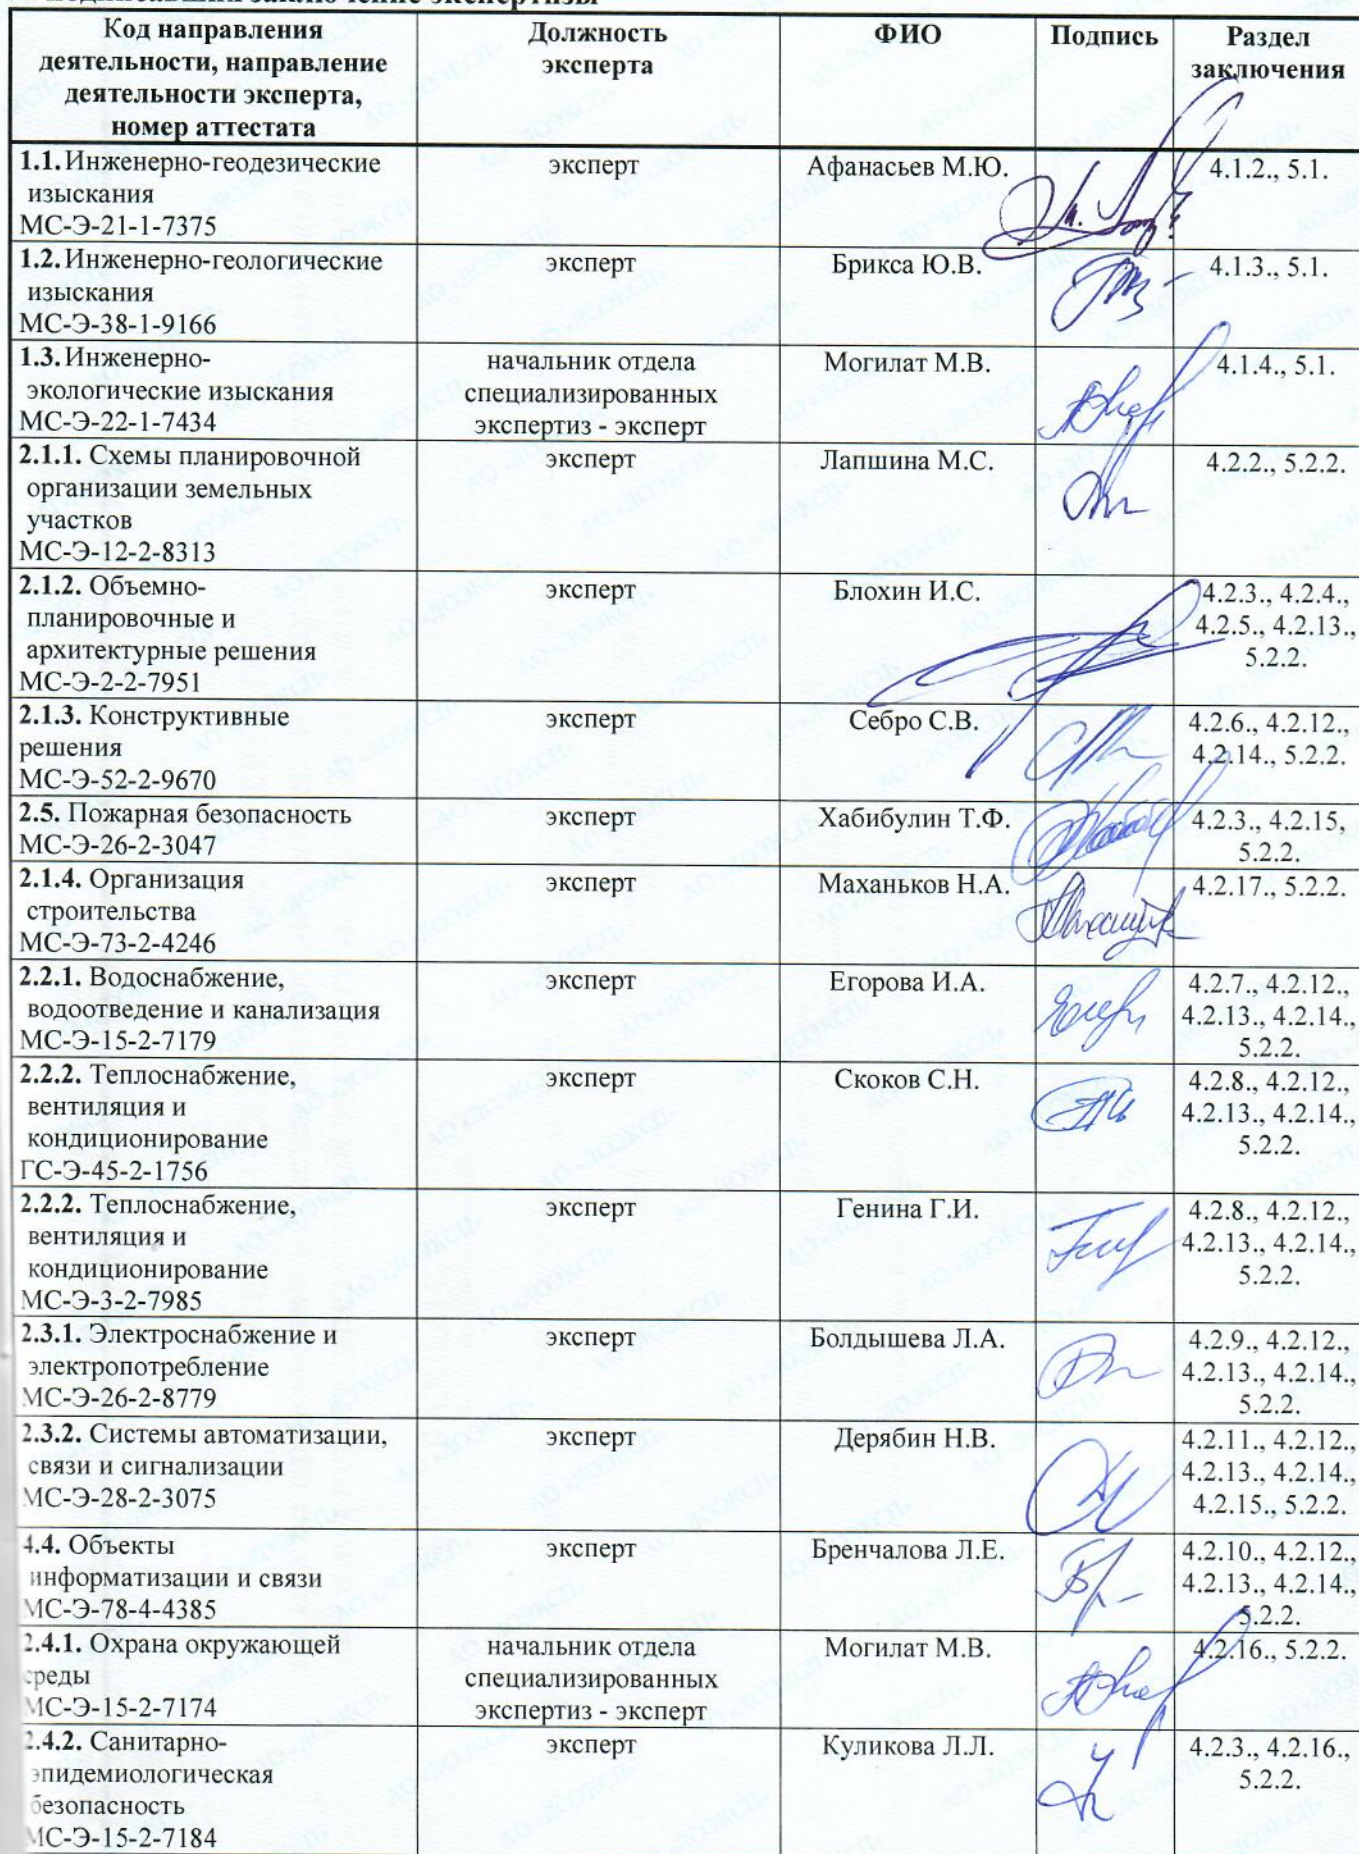 подписавших заключение экспертизы
Код направления деятельности, направление деятельности эксперта, номер аттестата
Должность эксперта
ФИО
Подпись
Раздел заключения
1.1. Инженерно-геодезические
изыскания
МС-Э-21-1-7375
эксперт
Афанасьев М.Ю.
4.1.2., 5.1.
1.2. Инженерно-геологические
изыскания
МС-Э-38-1-9166
эксперт
Брикса Ю.В.
4.1.3., 5.1.
1.3. Инженерно-
экологические изыскания
МС-Э-22-1-7434
начальник отдела
специализированных
экспертиз - эксперт
Могилат М.В.
4.1.4., 5.1.
2.1.1. Схемы планировочной
организации земельных
участков
МС-Э-12-2-8313
эксперт
Лапшина М.С.
4.2.2., 5.2.2.
2.1.2. Объемно-
планировочные и
архитектурные решения
МС-Э-2-2-7951
эксперт
Блохин И.С.
4.2.3., 4.2.4.,
4.2.5., 4.2.13.,
5.2.2.
2.1.3. Конструктивные
решения
МС-Э-52-2-9670
эксперт
Себро С.В.
4.2.6., 4.2.12.,
4.2.14., 5.2.2.
2.5. Пожарная безопасность
МС-Э-26-2-3047
эксперт
Хабибулин Т.Ф.
4.2.3., 4.2.15,
5.2.2.
2.1.4. Организация
строительства
МС-Э-73-2-4246
эксперт
Маханьков Н.А.
4.2.17., 5.2.2.
2.2.1. Водоснабжение,
водоотведение и канализация
МС-Э-15-2-7179
эксперт
Егорова И.А.
4.2.7., 4.2.12.,
4.2.13., 4.2.14.,
5.2.2.
2.2.2. Теплоснабжение,
вентиляция и
кондиционирование
ГС-Э-45-2-1756
эксперт
Скоков С.Н.
4.2.8., 4.2.12.,
4.2.13., 4.2.14.,
5.2.2.
2.2.2. Теплоснабжение,
вентиляция и
кондиционирование
МС-Э-3-2-7985
эксперт
Генина Г.И.
4.2.8., 4.2.12.,
4.2.13., 4.2.14.,
5.2.2.
2.3.1. Электроснабжение и
электропотребление
МС-Э-26-2-8779
эксперт
Болдышева Л.А.
4.2.9., 4.2.12.,
4.2.13., 4.2.14.,
5.2.2.
2.3.2. Системы автоматизации,
связи и сигнализации
МС-Э-28-2-3075
эксперт
Дерябин Н.В.
4.2.11., 4.2.12.,
4.2.13., 4.2.14.,
4.2.15., 5.2.2.
4.4. Объекты
информатизации и связи
МС-Э-78-4-4385
эксперт
Бренчалова Л.Е.
4.2.10., 4.2.12.,
4.2.13., 4.2.14.,
5.2.2.
2.4.1. Охрана окружающей
среды
МС-Э-15-2-7174
начальник отдела
специализированных
экспертиз - эксперт
Могилат М.В.
4.2.16., 5.2.2.
2.4.2. Санитарно-
эпидемиологическая
безопасность
МС-Э-15-2-7184
эксперт
Куликова Л.Л.
4.2.3., 4.2.16.,
5.2.2.